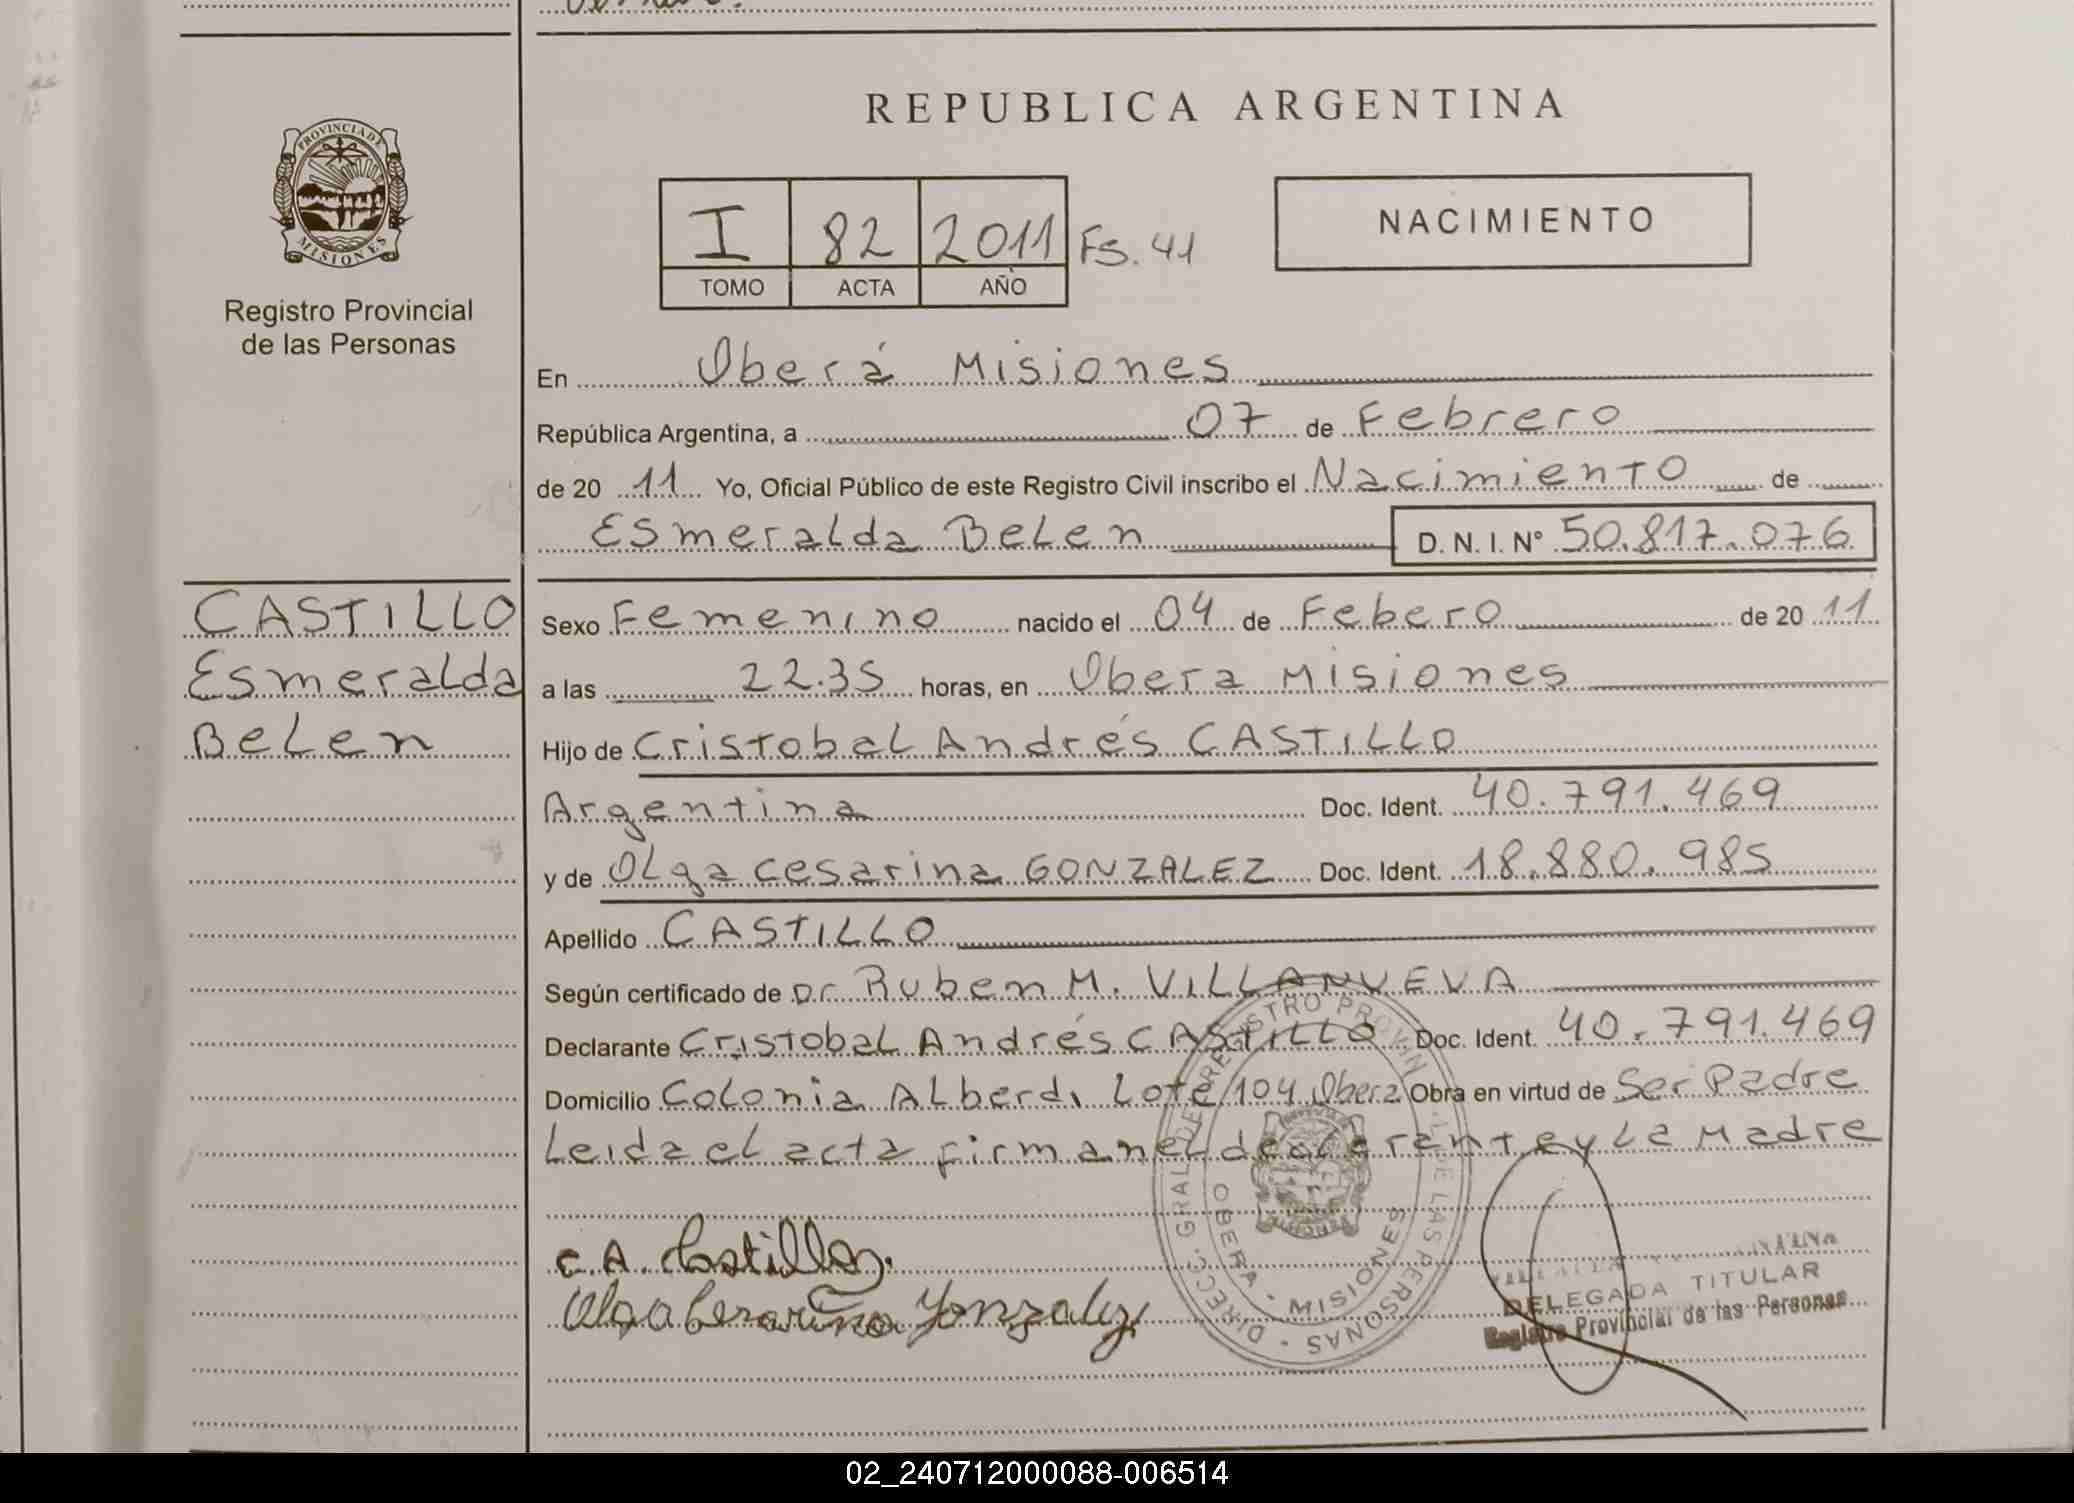 REPUBLICA ARGENTINA
PROVINCIA DE
MISIONES
Registro Provincial
de las Personas
I 82 2011 Fs. 41
TOMO ACTA AÑO
NACIMIENTO
En Oberá Misiones
República Argentina, a 07 de Febrero
de 20 11 Yo, Oficial Público de este Registro Civil inscribo el Nacimiento de
Esmeralda Belen D. N. I. N° 50.817.076
CASTILLO
Esmeralda
Belen
Sexo Femenino nacido el 04 de Febero de 20 11
a las 22.35 horas, en Obera Misiones
Hijo de Cristobal Andrés CASTILLO
Argentina Doc. Ident. 40.791.469
y de Olga Cesarina GONZALEZ Doc. Ident. 18.880.985
Apellido CASTILLO
Según certificado de Dr Ruben M. VILLANUEVA
Declarante Cristobal Andrés CASTILLO Doc. Ident. 40.791.469
Domicilio Colonia Alberdi Lote 104 Obera Obra en virtud de Ser Padre
Leida el acta firman el declarante y La Madre
C.A. Castillo.
Olga Cesarina Gonzalez
DIRECC. GRAL. DE REGISTRO PROVINCIAL DE LAS PERSONAS
OBERA - MISIONES
DELEGADA TITULAR
Registro Provincial de las Personas
02_240712000088-006514